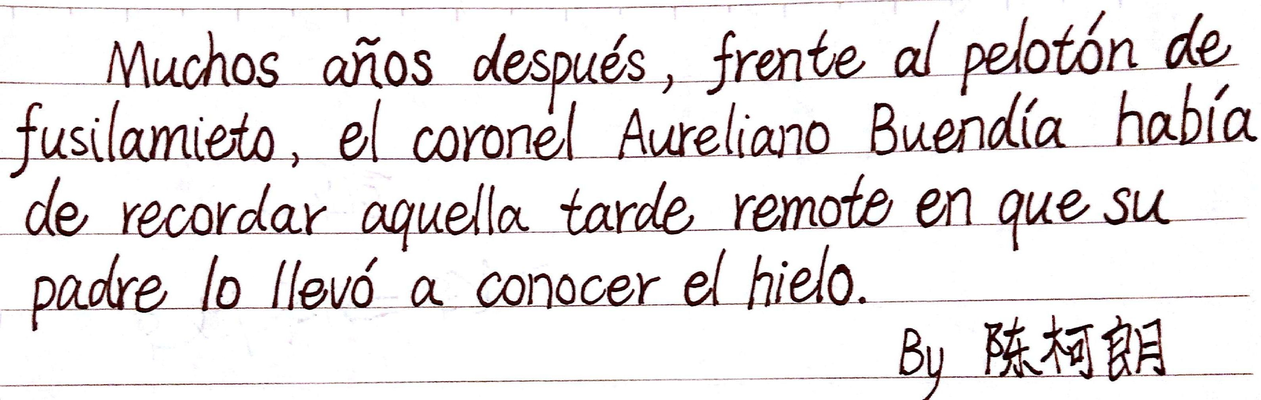 Muchos años después, frente al pelotón de
fusilamieto, el coronel Aureliano Buendía había
de recordar aquella tarde remote en que su
padre lo llevó a conocer el hielo.
By 陈柯朗